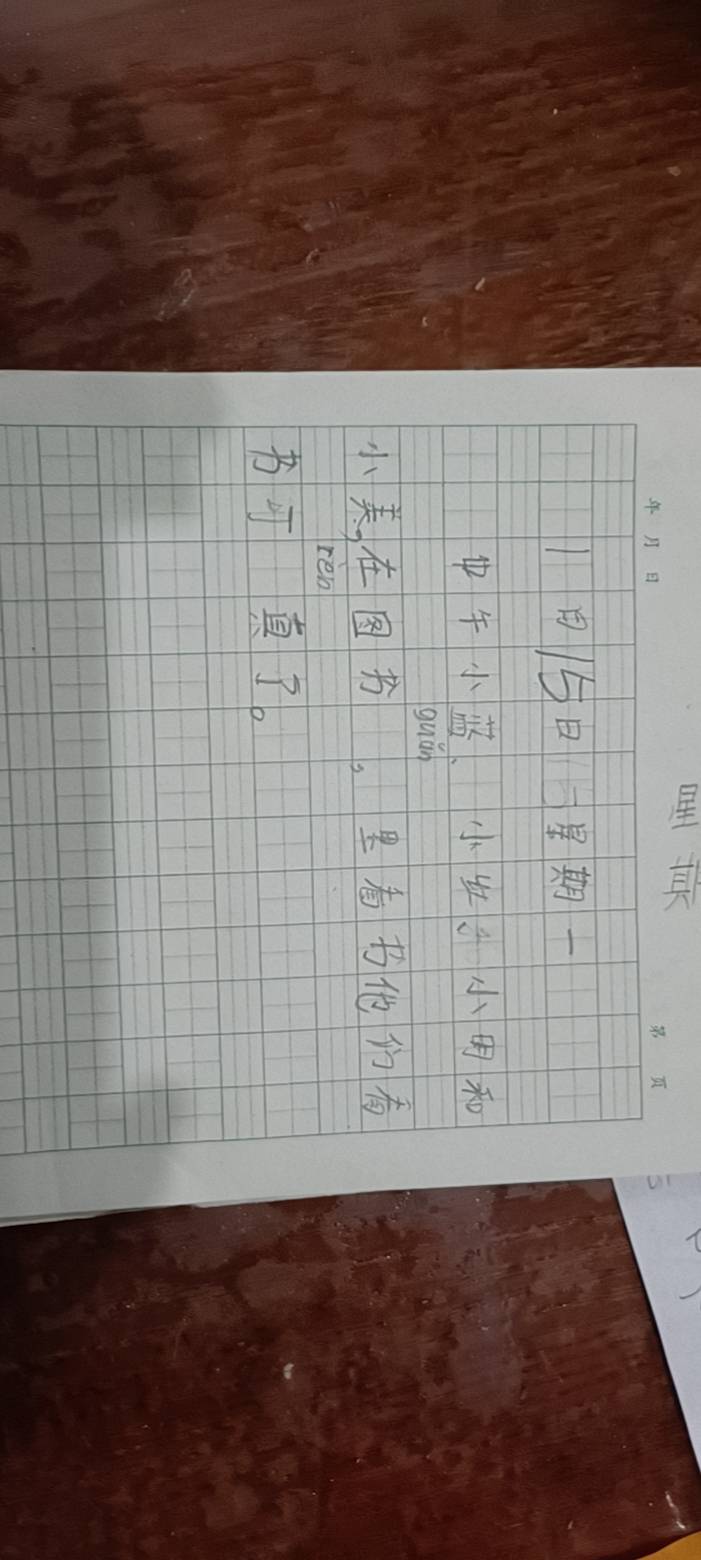 年 月 日 第 页
11月15日 星期一
中午小蓝、小红、小明和
guǎn
小美,在图书 ,里看书他们看
rèn
书可 真了。